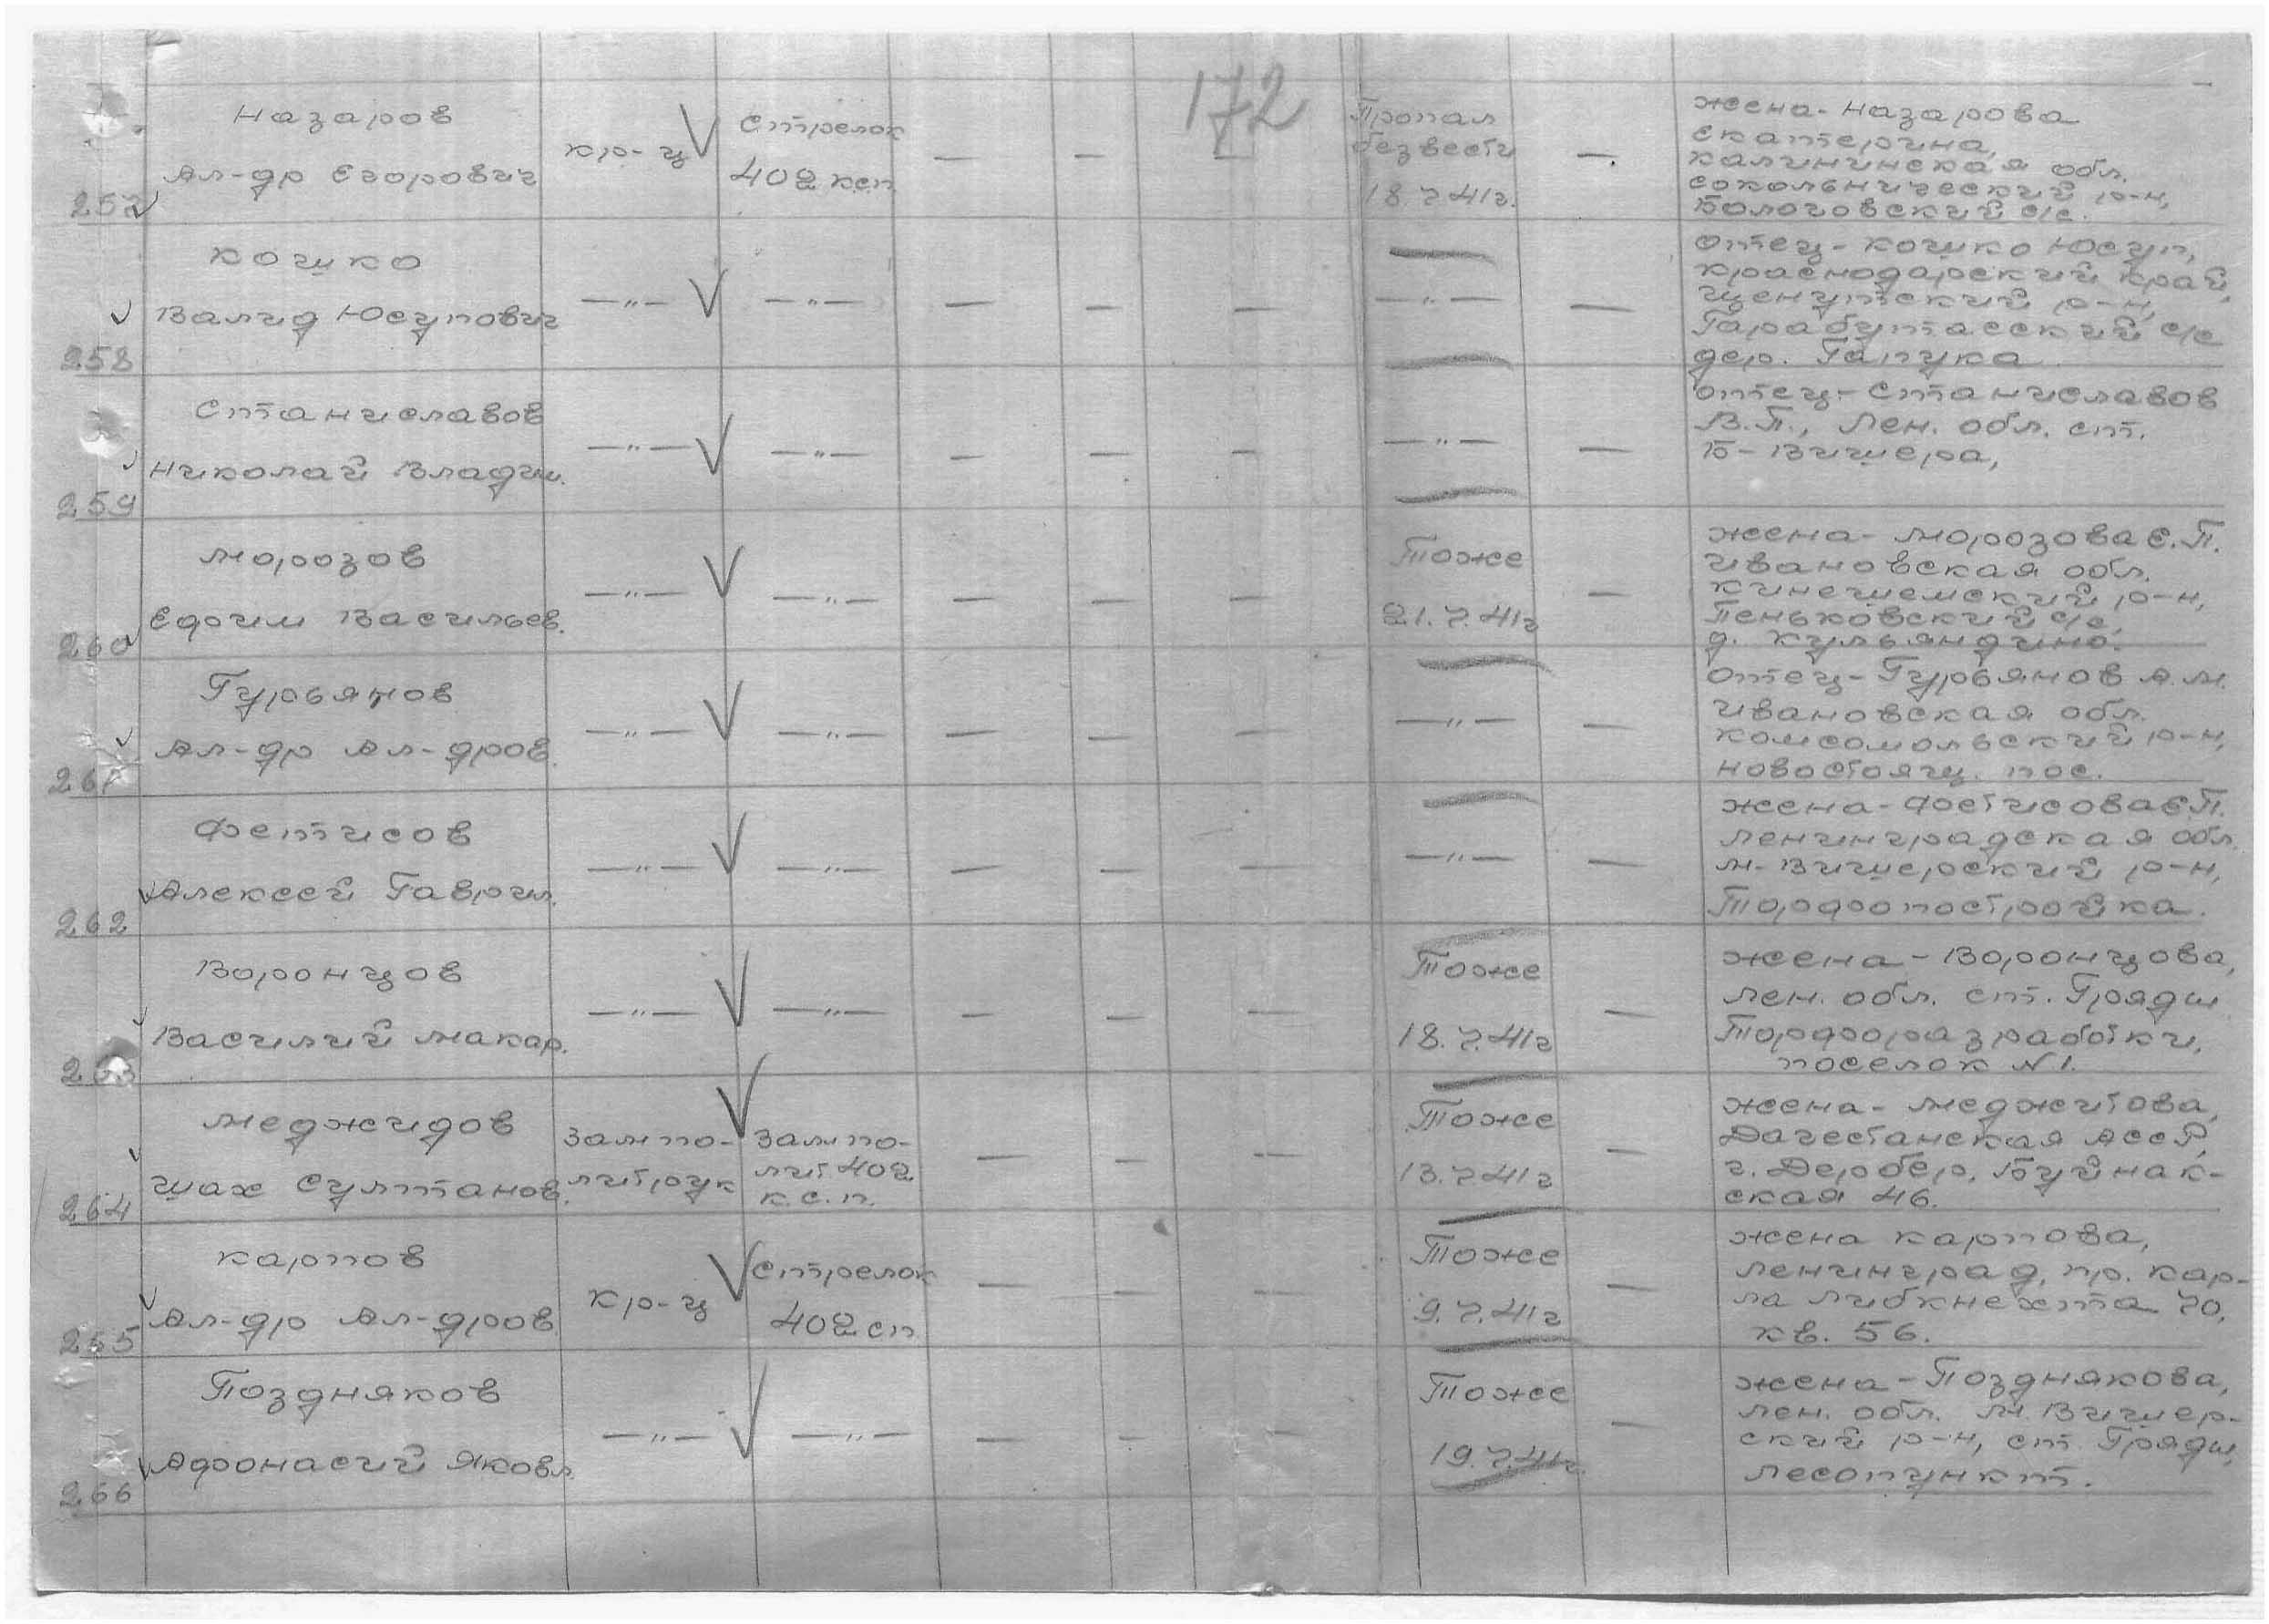 172
Назаров
Ал-др Егорович
257
кр-ц
Стрелок
402 ксп
— — —
Пропал
безвести
18.7.41г.
—
жена - Назарова
Екатерина,
Калининская обл.
Сокольнический р-н,
Бологовский с/с.
Кошко
Валид Юсупович
258
—"— —"— — — — —"— —
отец - Кошко Юсуп,
Краснодарский край,
р-н,
с/с
дер. Гапука
Станиславов
Николай Владим.
259
—"— —"— — — — —"— —
отец - Станиславов
В.П., Лен. обл. ст.
Б-Вишера,
Морозов
Ефим Васильев.
260
—"— —"— — — —
Тоже
21.7.41г
—
жена - Морозова Е.П.
Ивановская обл.
Кинешемский р-н,
Пеньковский с/с,
д. Кульяндино.
Гурьянов
Ал-др Ал-дров.
261
—"— —"— — — — —"— —
отец - Гурьянов А.М.
Ивановская обл.
Комсомольский р-н,
Новостоящ. пос.
Фетисов
Алексей Гаврил.
262
—"— —"— — — — —"— —
жена - Фетисова Е.П.
Ленинградская обл.
М-Вишерский р-н,
Торфопостройка.
Воронцов
Василий Макар.
263
—"— —"— — — —
Тоже
18.7.41г
—
жена - Воронцова,
Лен. обл. ст. Гряды
Торфоразработки,
поселок N1.
Меджидов
Шах Султанов.
264
Зам по-
литрук
Зам по-
лит 402
к.с.п.
— — —
Тоже
13.7.41г
—
жена - Меджитова,
Дагестанская АССР,
г. Дербер, Буйнак-
ская 46.
Карпов
Ал-др Ал-дров
265
кр-ц
Стрелок
402 сп
— — —
Тоже
9.7.41г
—
жена Карпова,
Ленинград, пр. Кар-
ла Либкнехта 70,
кв. 56.
Поздняков
Афонасий Яковл.
266
—"— —"— — — —
Тоже
19.7.41г.
—
жена - Позднякова,
Лен. обл. М.Вишер-
ский р-н, ст. Гряды,
лесопункт.